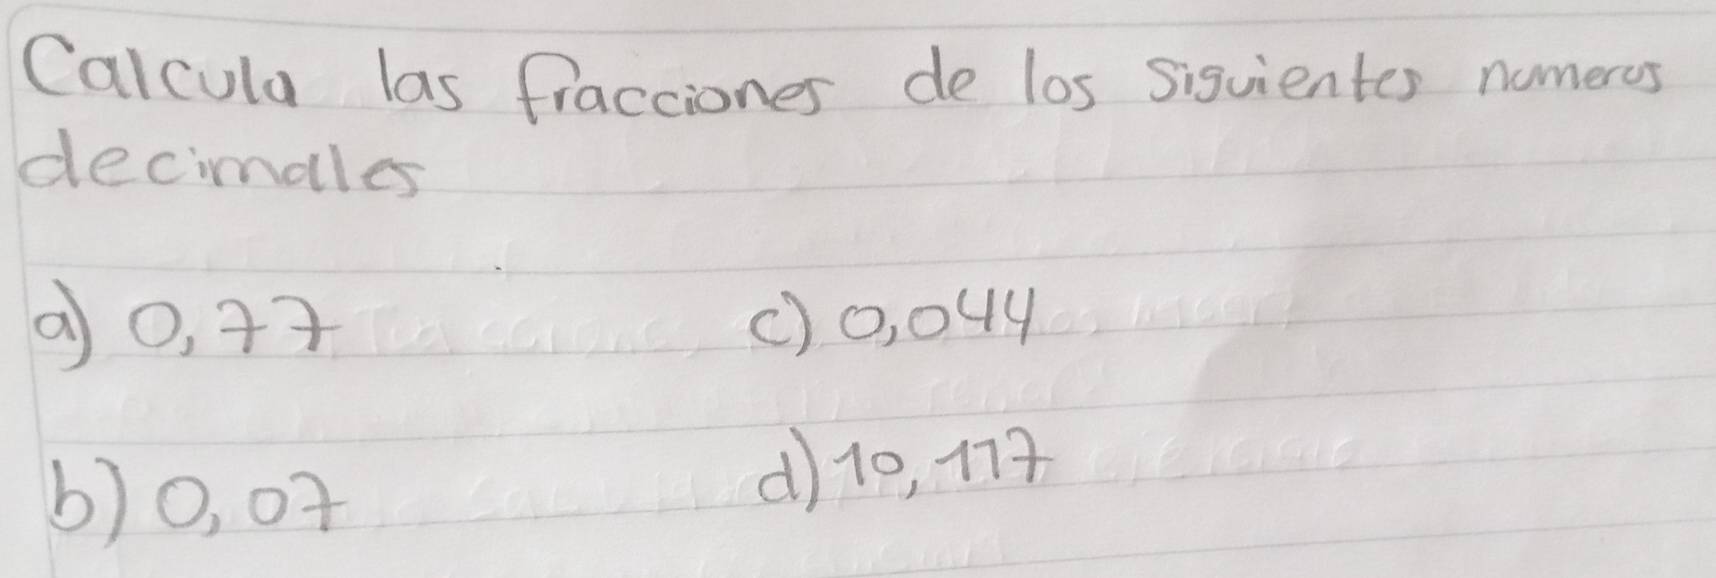 Calcula las fracciones de los siguientes numeros
decimales
a) 0,77 c) 0,044
b) 0,07 d) 10,117